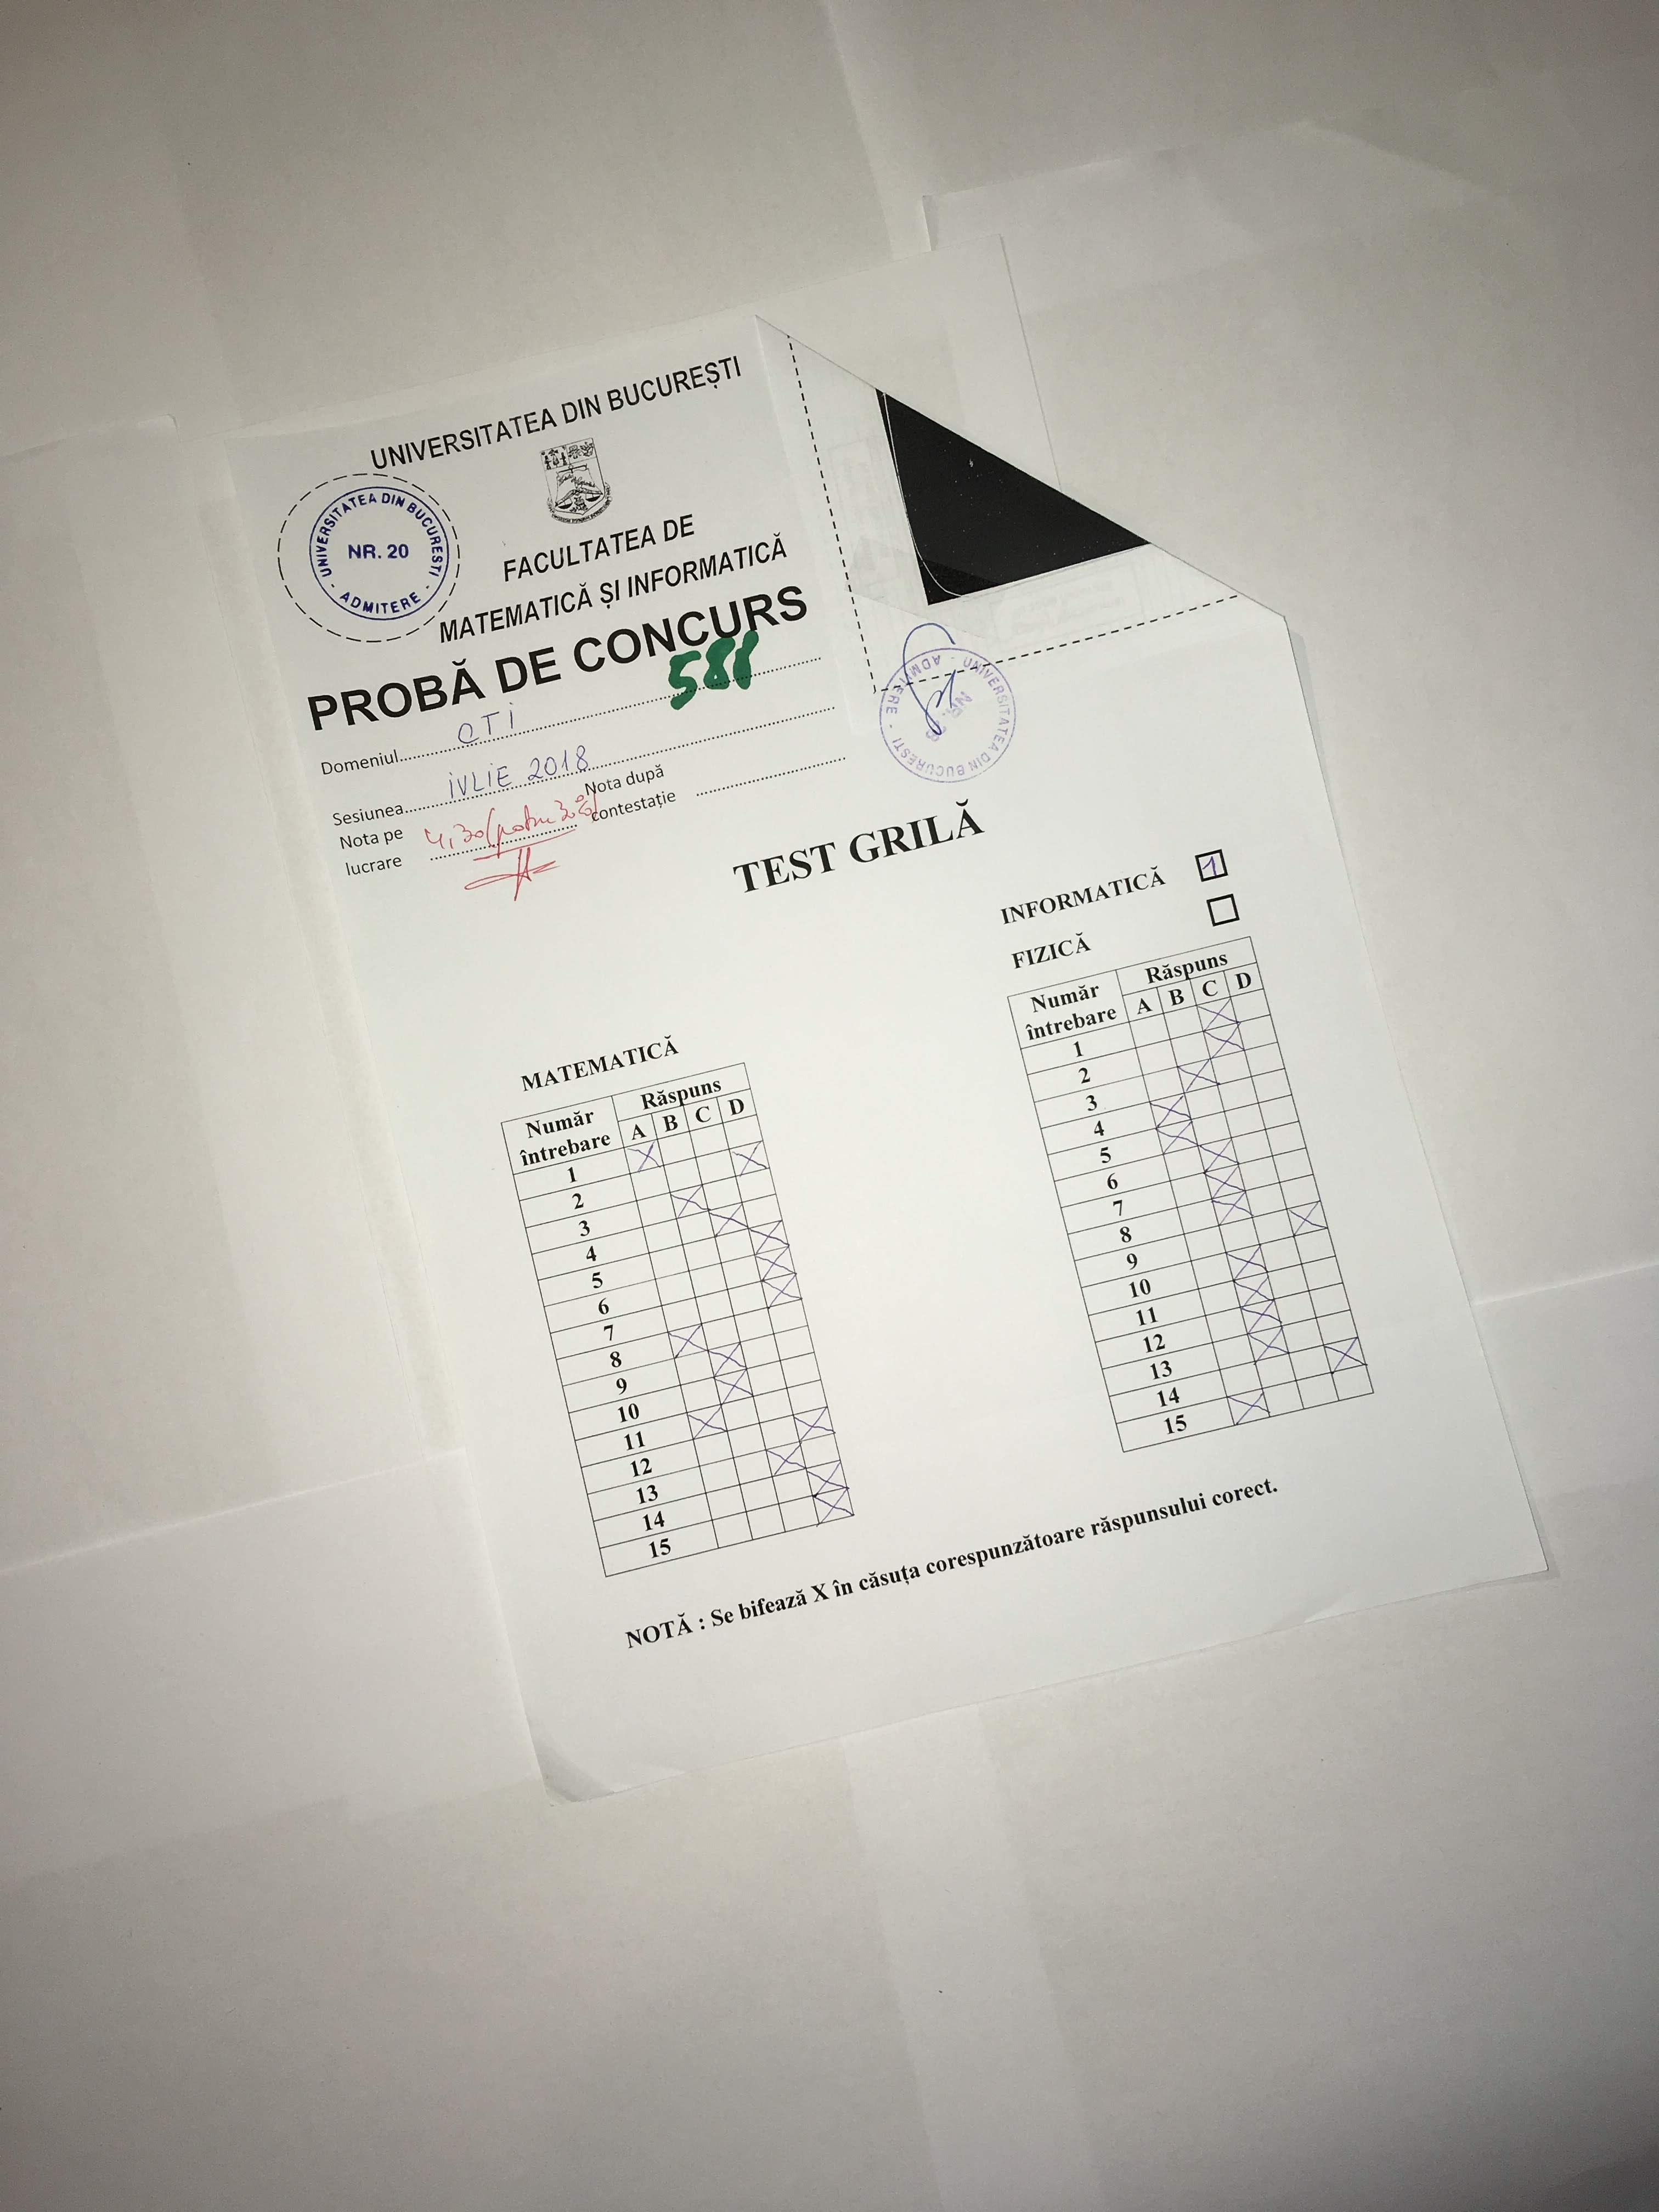 UNIVERSITATEA DIN BUCUREȘTI
UNIVERSITATEA DIN BUCURESTI
NR. 20
ADMITERE
FACULTATEA DE
MATEMATICĂ ȘI INFORMATICĂ
PROBĂ DE CONCURS
588
Domeniul CTI
Sesiunea IULIE 2018
Nota pe lucrare 4,30 (patru 30%)
Nota după contestație
UNIVERSITATEA DIN BUCURESTI
ADMITERE
NR.
TEST GRILĂ
INFORMATICĂ 1
FIZICĂ
MATEMATICĂ
Număr întrebare Răspuns
A B C D
1 X
2 X
3 X
4 X
5 X
6 X
7 X
8 X
9 X
10 X
11 X
12 X
13 X
14 X
15 X
Număr întrebare Răspuns
A B C D
1 X
2 X
3 X
4 X
5 X
6 X
7 X
8 X
9 X
10 X
11 X
12 X
13 X
14 X
15 X
NOTĂ : Se bifează X în căsuța corespunzătoare răspunsului corect.